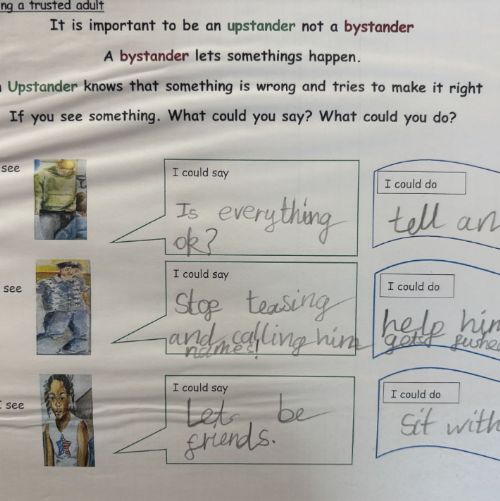 ng a trusted adult
It is important to be an upstander not a bystander
A bystander lets somethings happen.
Upstander knows that something is wrong and tries to make it right
If you see something. What could you say? What could you do?
see
I could say
Is everything
ok?
I could do
tell an
see
I could say
Stop teasing
and calling him
names!
I could do
help him
gets pushed
see
I could say
Lets be
friends.
I could do
Sit with